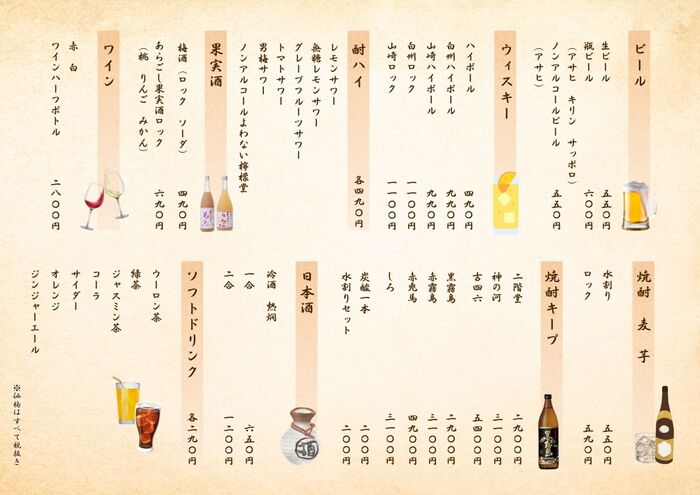 ビール
生ビール 五五〇円
瓶ビール 六〇〇円
(アサヒ キリン サッポロ)
ノンアルコールビール 五五〇円
(アサヒ)
ウィスキー
ハイボール 四九〇円
白州ハイボール 九九〇円
山崎ハイボール 九九〇円
白州ロック 一一〇〇円
山崎ロック 一一〇〇円
酎ハイ 各四九〇円
レモンサワー
無糖レモンサワー
グレープフルーツサワー
トマトサワー
男梅サワー
ノンアルコールよわない檸檬堂
果実酒
梅酒(ロック ソーダ) 四九〇円
あらごし果実酒ロック 六九〇円
(桃 りんご みかん)
ワイン
赤 白
ワインハーフボトル 二八〇〇円
焼酎 麦 芋
水割り 五五〇円
ロック 五九〇円
焼酎キープ
二階堂 二九〇〇円
神の河 三一〇〇円
吉四六 五四〇〇円
黒霧島 二九〇〇円
赤霧島 三一〇〇円
赤兎馬 四九〇〇円
しろ 三一〇〇円
炭酸一本 二〇〇円
水割りセット 二〇〇円
日本酒
冷酒 熱燗
一合 六五〇円
二合 一二〇〇円
ソフトドリンク 各二九〇円
ウーロン茶
緑茶
ジャスミン茶
コーラ
サイダー
オレンジ
ジンジャーエール
※価格はすべて税抜き